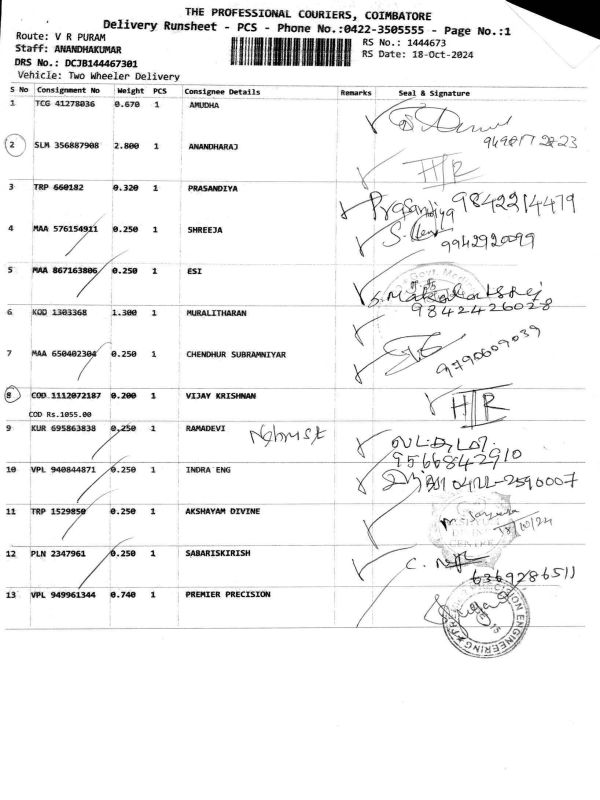 THE PROFESSIONAL COURIERS, COIMBATORE
Delivery Runsheet - PCS - Phone No.:0422-3505555 - Page No.:1
Route: V R PURAM
RS No.: 1444673
Staff: ANANDHAKUMAR
RS Date: 18-Oct-2024
DRS No.: DCJB144467301
Vehicle: Two Wheeler Delivery
S No Consignment No Weight PCS Consignee Details Remarks Seal & Signature
1 TCG 41278036 0.670 1 AMUDHA
2 SLM 356887908 2.800 1 ANANDHARAJ H/R
3 TRP 660182 0.320 1 PRASANDIYA Prasandiya 9842214479
4 MAA 576154911 0.250 1 SHREEJA
9942920099
5 MAA 867163806 0.250 1 ESI
6 KOD 1303368 1.300 1 MURALITHARAN 9842426028
7 MAA 650402304 0.250 1 CHENDHUR SUBRAMNIYAR 9790609039
8 COD 1112072187 0.200 1 VIJAY KRISHNAN H/R
COD Rs.1055.00
9 KUR 695863838 0.250 1 RAMADEVI
9566842910
10 VPL 940844871 0.250 1 INDRA ENG 0422-2590007
11 TRP 1529850 0.250 1 AKSHAYAM DIVINE
18/10/24
12 PLN 2347961 0.250 1 SABARISKIRISH
6369286511
13 VPL 949961344 0.740 1 PREMIER PRECISION